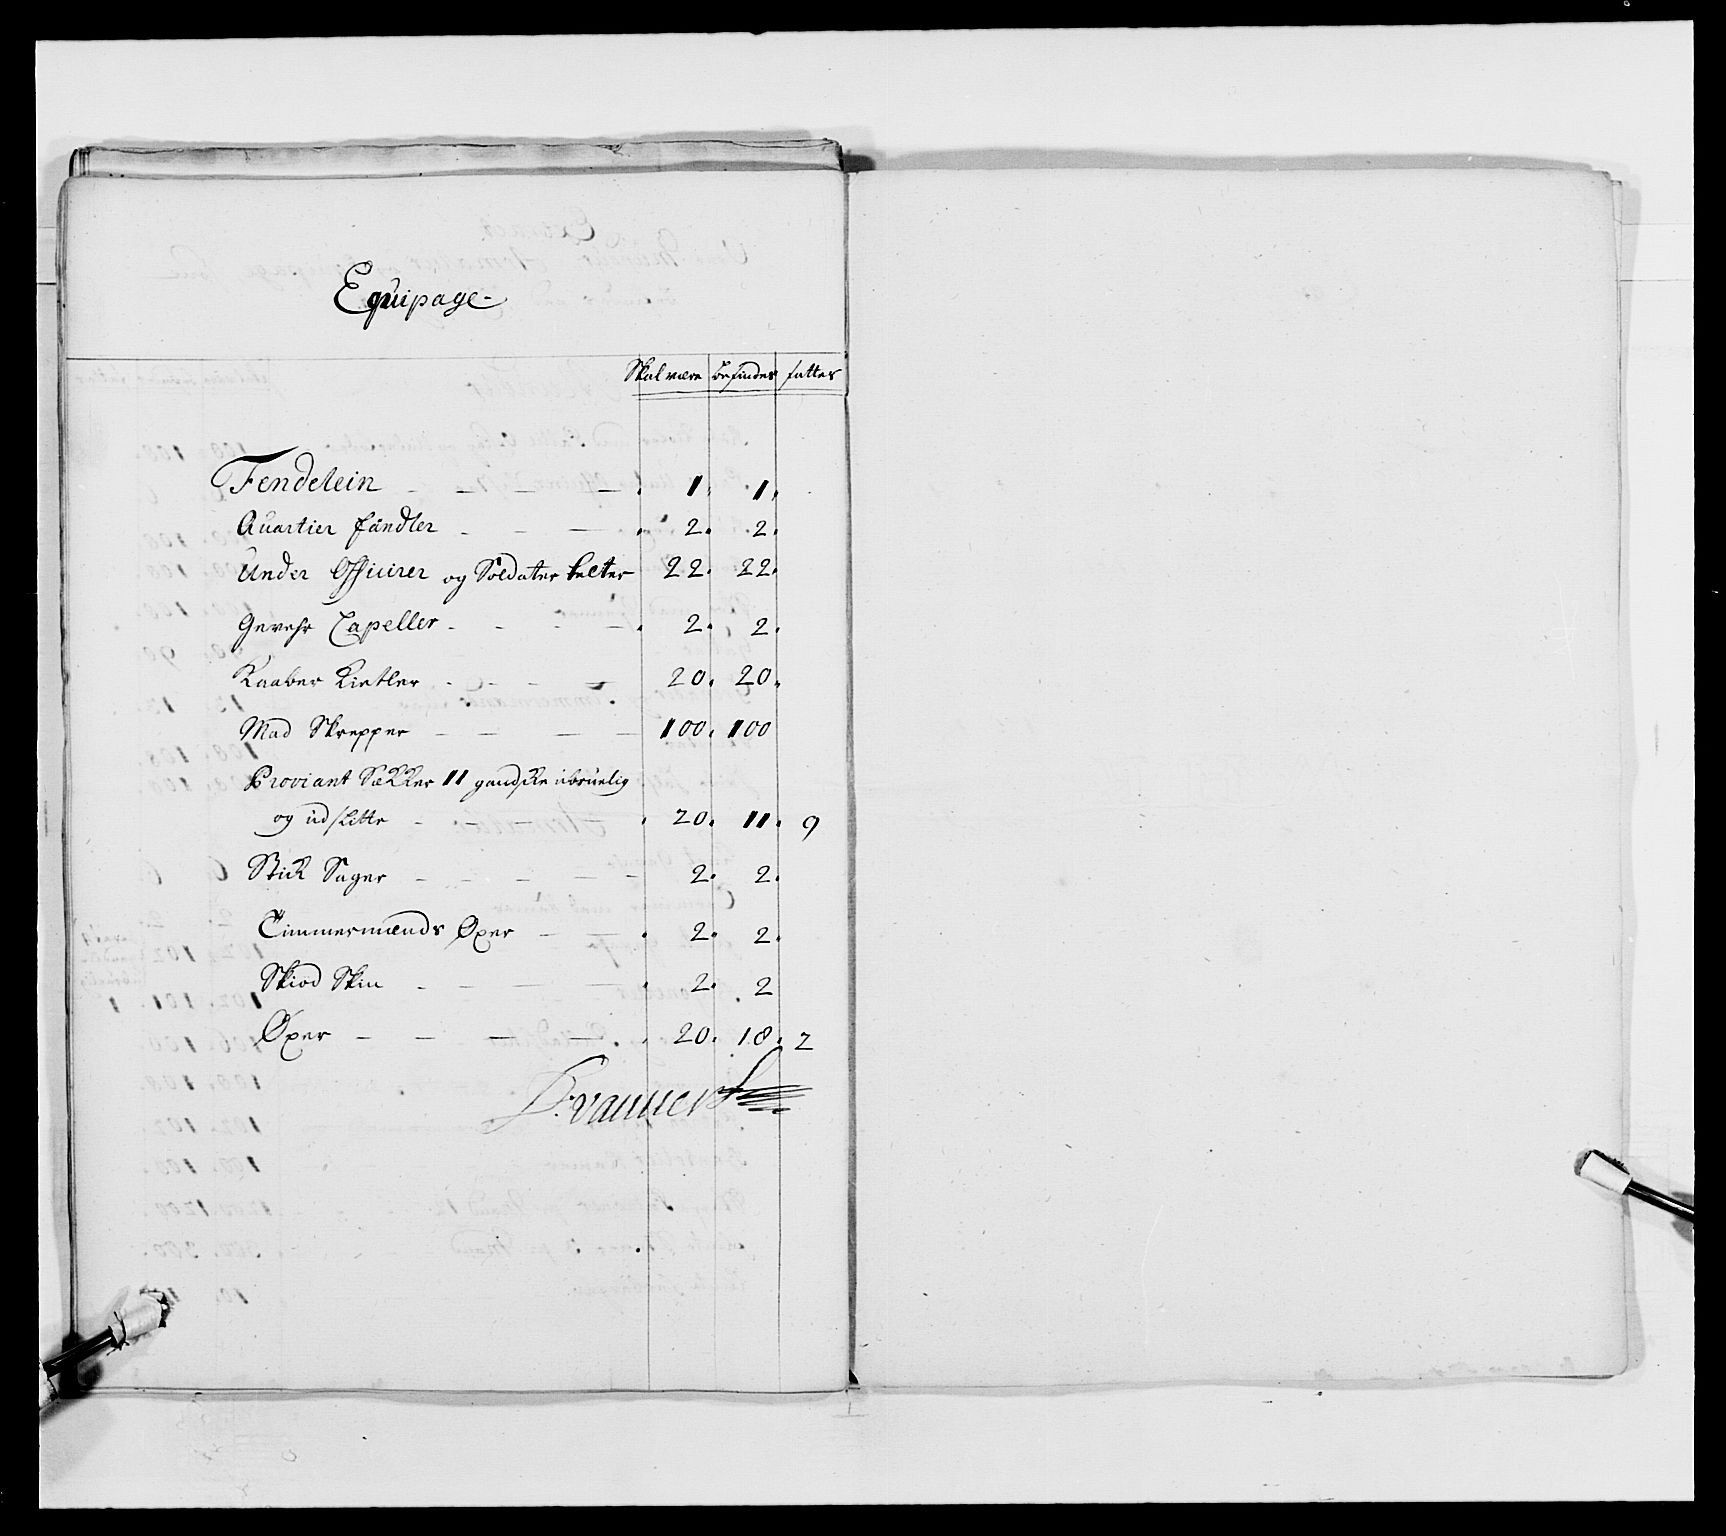 Equipage
Skal være befindes fattes
Fendelein 1. 1.
Quartier fändler 2. 2.
Under Officirer og Soldater telter 22. 22.
Gevehr Capeller 2. 2.
Kaaber Kietler 20. 20.
Mad Skrepper 100. 100
Proviant Sække 11 gandske ubruelig
og udslitte 20. 11. 9
Stick Sager 2. 2.
Timmermænds Øxer 2. 2.
Skiød Skin 2. 2
Øxer 20. 18. 2